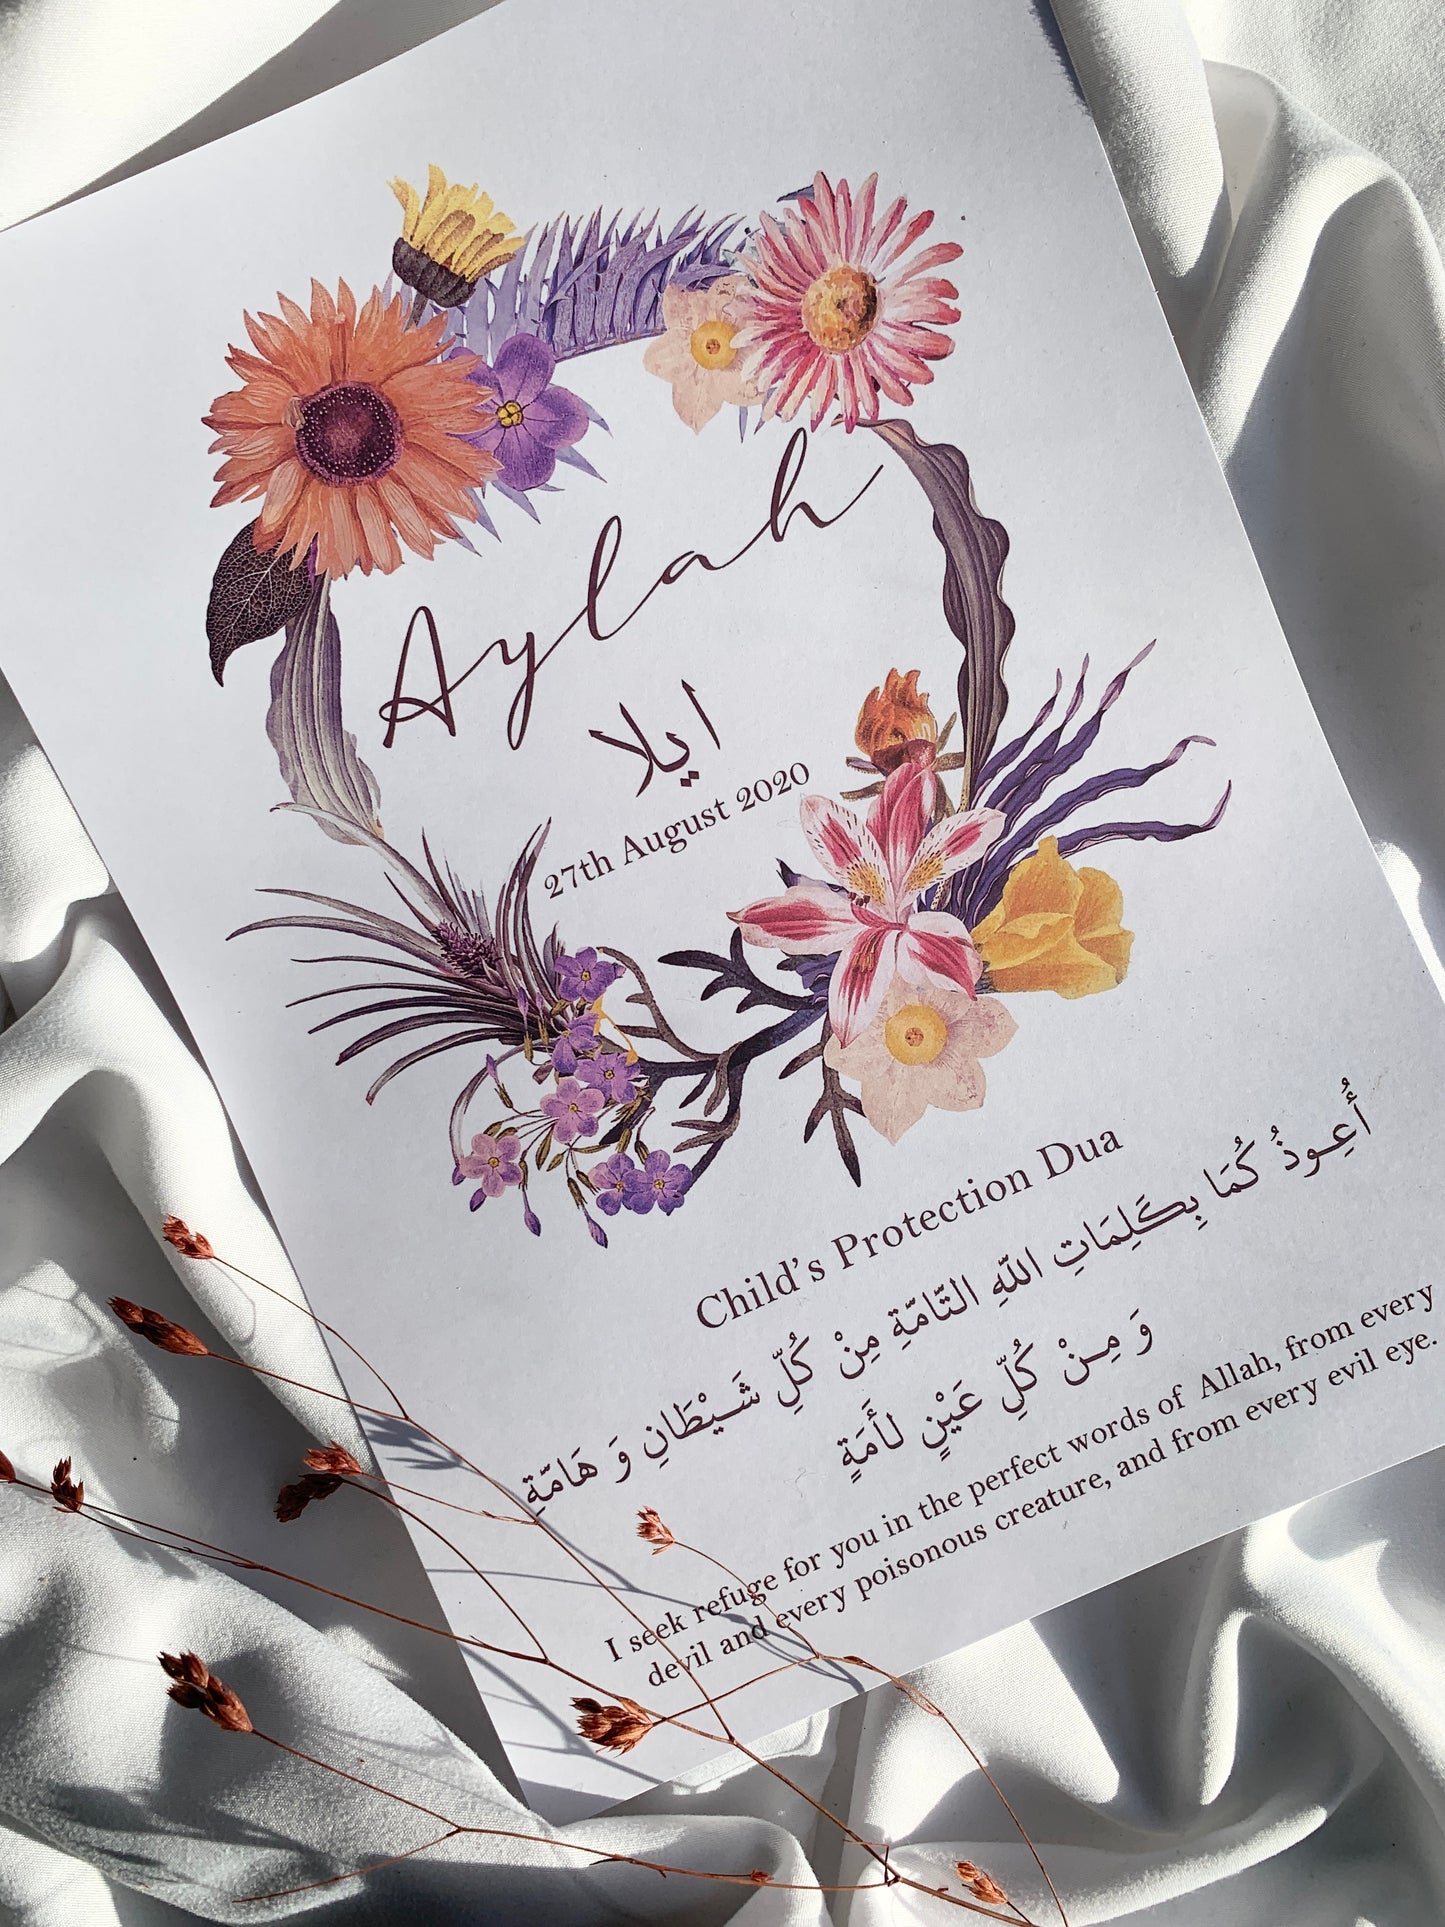 Aylah
ايلا
27th August 2020
Child's Protection Dua
أُعِـوذُ كُمَا بِكَلِمَاتِ اللّٰهِ التَّامَّةِ مِنْ كُلِّ شَـيْطَانِ وَ هَامَّةِ
وَ مِـنْ كُلِّ عَيْنٍ لأَمَةٍ
I seek refuge for you in the perfect words of Allah, from every
devil and every poisonous creature, and from every evil eye.